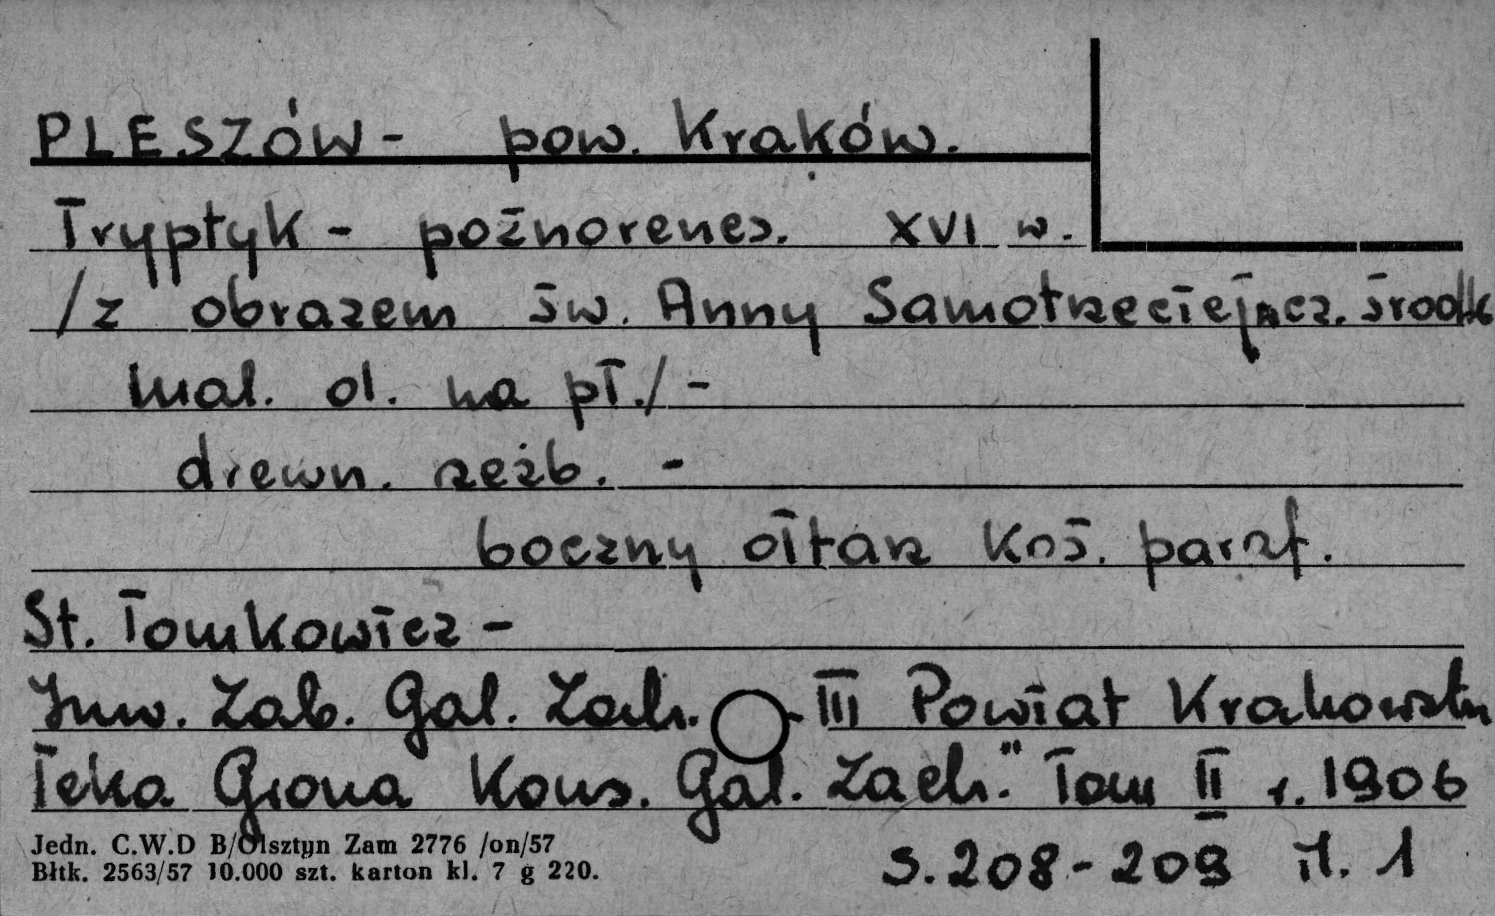 PLESZÓW - pow. Kraków.
Tryptyk - poźnorenes. XVI w.
/z obrazem św. Anny Samotrzeciej w cz. środk
mal. ol. na pł./ -
drewn. rzeźb. -
boczny ołtarz Koś. paraf.
St. Tomkowicz -
Inw. Zab. Gal. Zach. - III Powiat Krakowski
Teka Grona Kons. Gal. Zach." Tom II r. 1906
s. 208 - 209 il. 1
Jedn. C.W.D B/Olsztyn Zam 2776 /on/57
Błtk. 2563/57 10.000 szt. karton kl. 7 g 220.